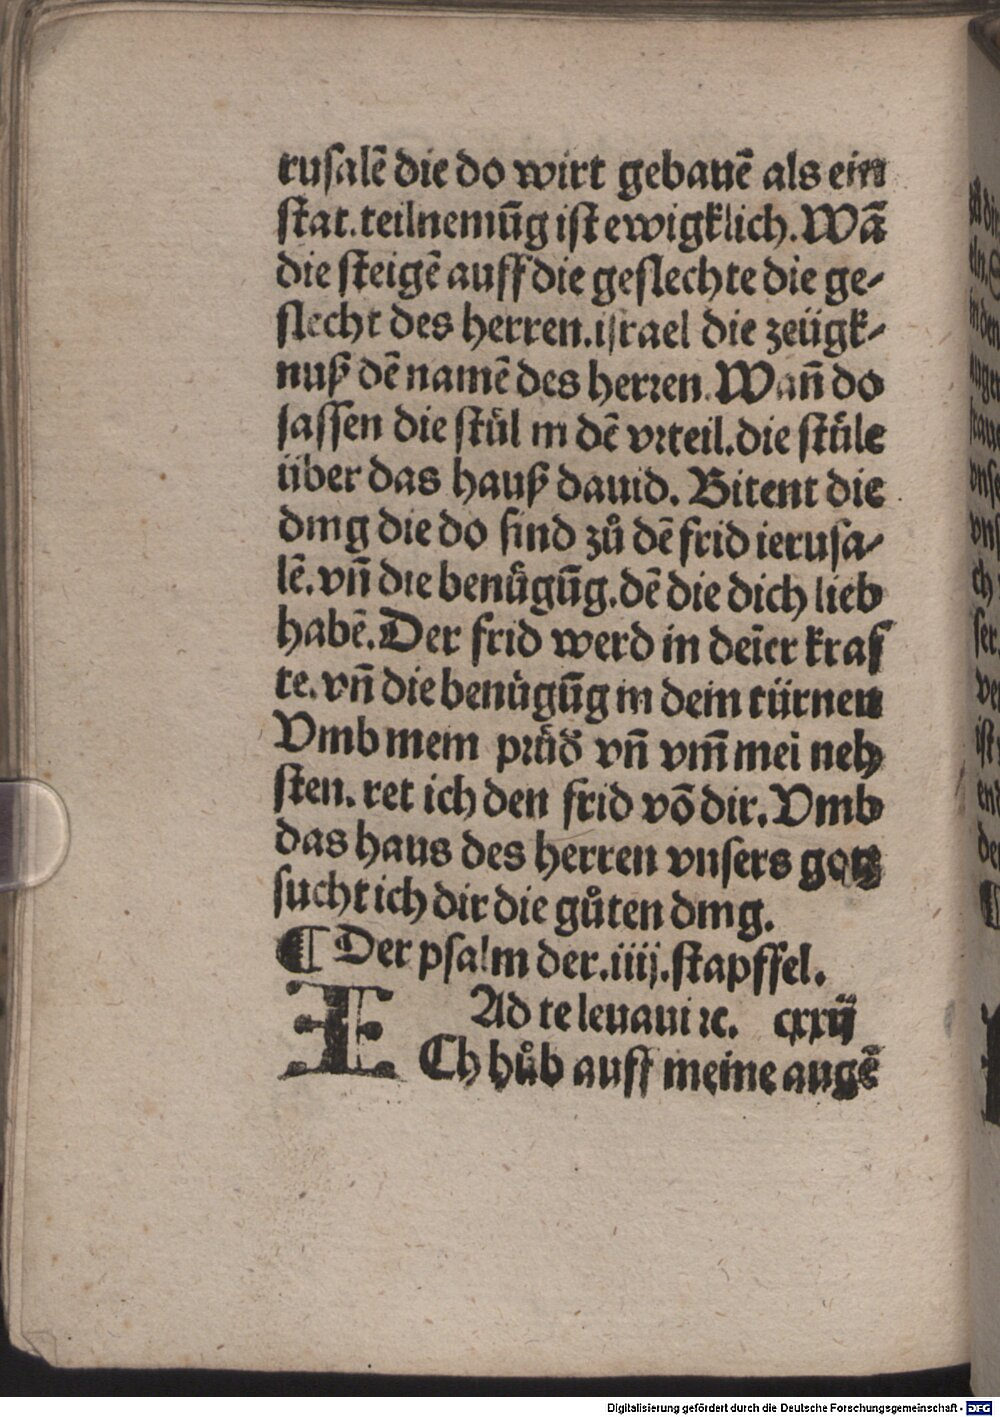 rusalē die do wirt gebauē als ein
stat. teilnemūg ist ewigklich. Wā
die steigē auff die geslechte die ge-
slecht des herren. israel die zeügk-
nuß dē namē des herren. Wañ do
sassen die stůl in dē vrteil. die stůle
über das hauß dauid. Bitent die
ding die do sind zů dē frid ierusa-
lē. vñ die benůgūg. dē die dich lieb
habē. Der frid werd in deīer kraf
te. vñ die benůgūg in dein türnen
Vmb mein průd' vñ vm̄ mei neh
sten. ret ich den frid vō dir. Vmb
das haus des herren vnsers gotz
sucht ich dir die gůten ding.
¶ Der psalm der. iiij. stapffel.
Ad te leuaui ⁊c. cxxij
ICh hůb auff meine augē
Digitalisierung gefördert durch die Deutsche Forschungsgemeinschaft - DFG